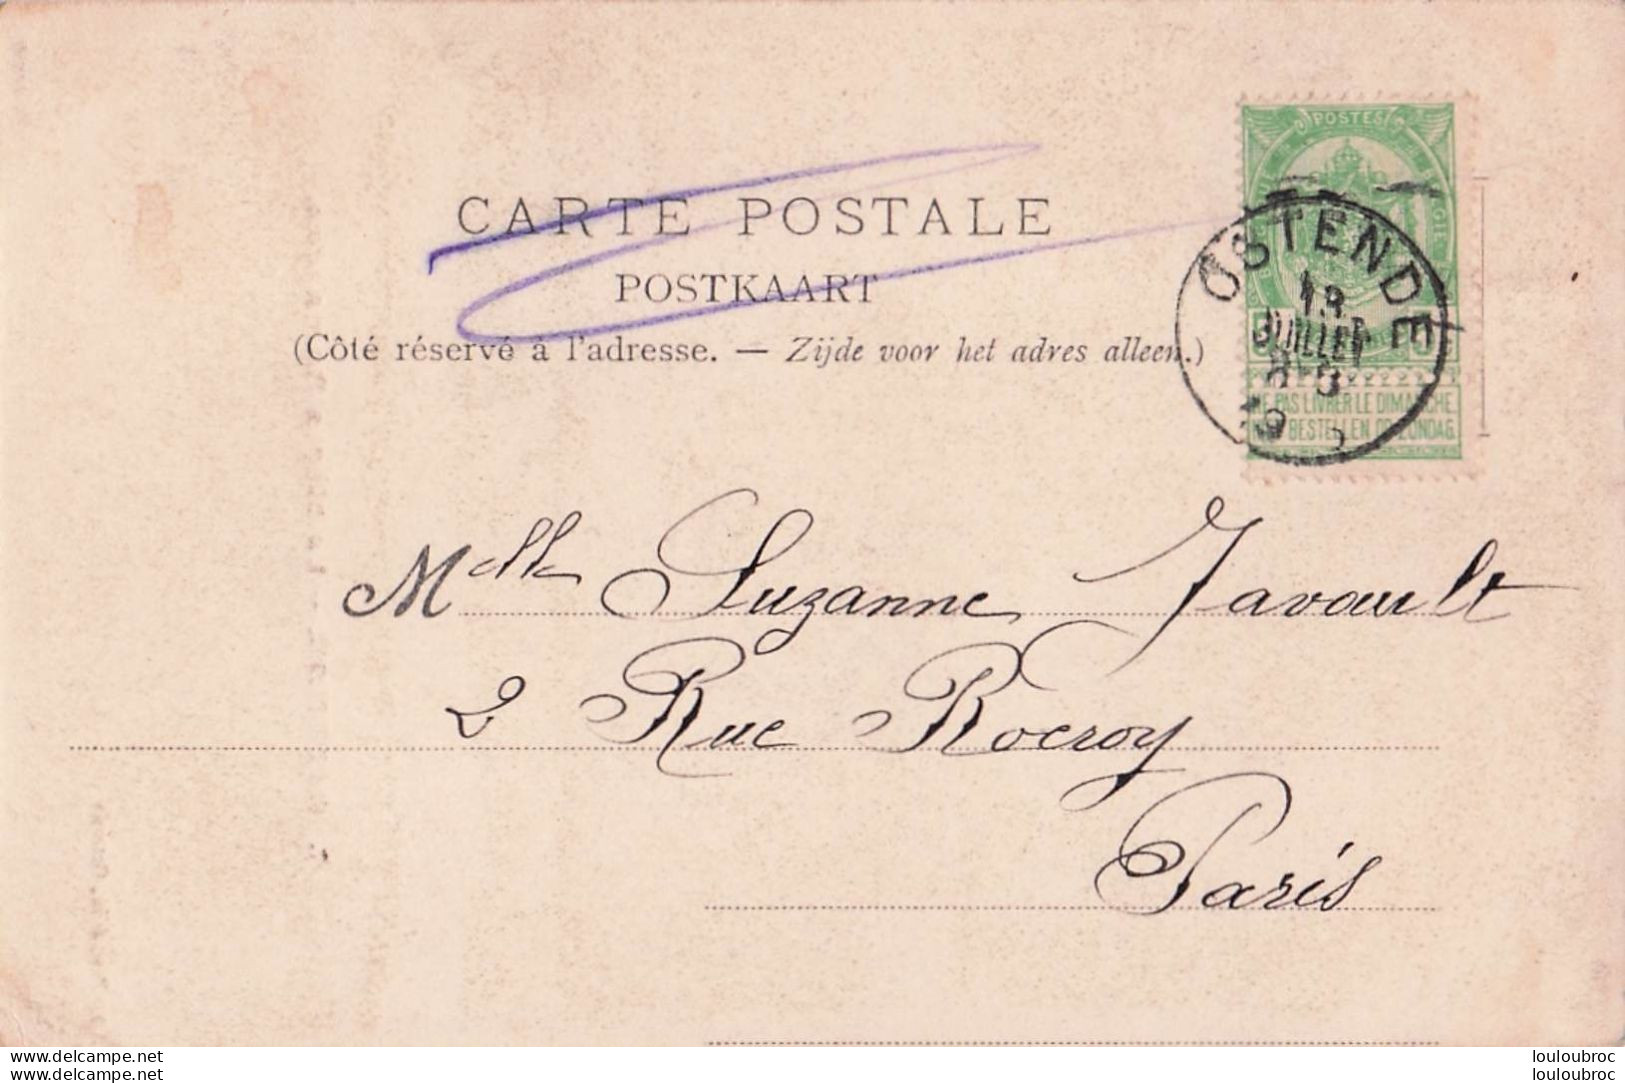 CARTE POSTALE
POSTKAART
(Côté réservé à l'adresse. — Zijde voor het adres alleen.)
POSTES
OSTENDE
JUILLET
NE PAS LIVRER LE DIMANCHE
BESTELLEN OP ZONDAG
Melle Suzanne Javault
2 Rue Rocroy
Paris
www.delcampe.net
louloubroc